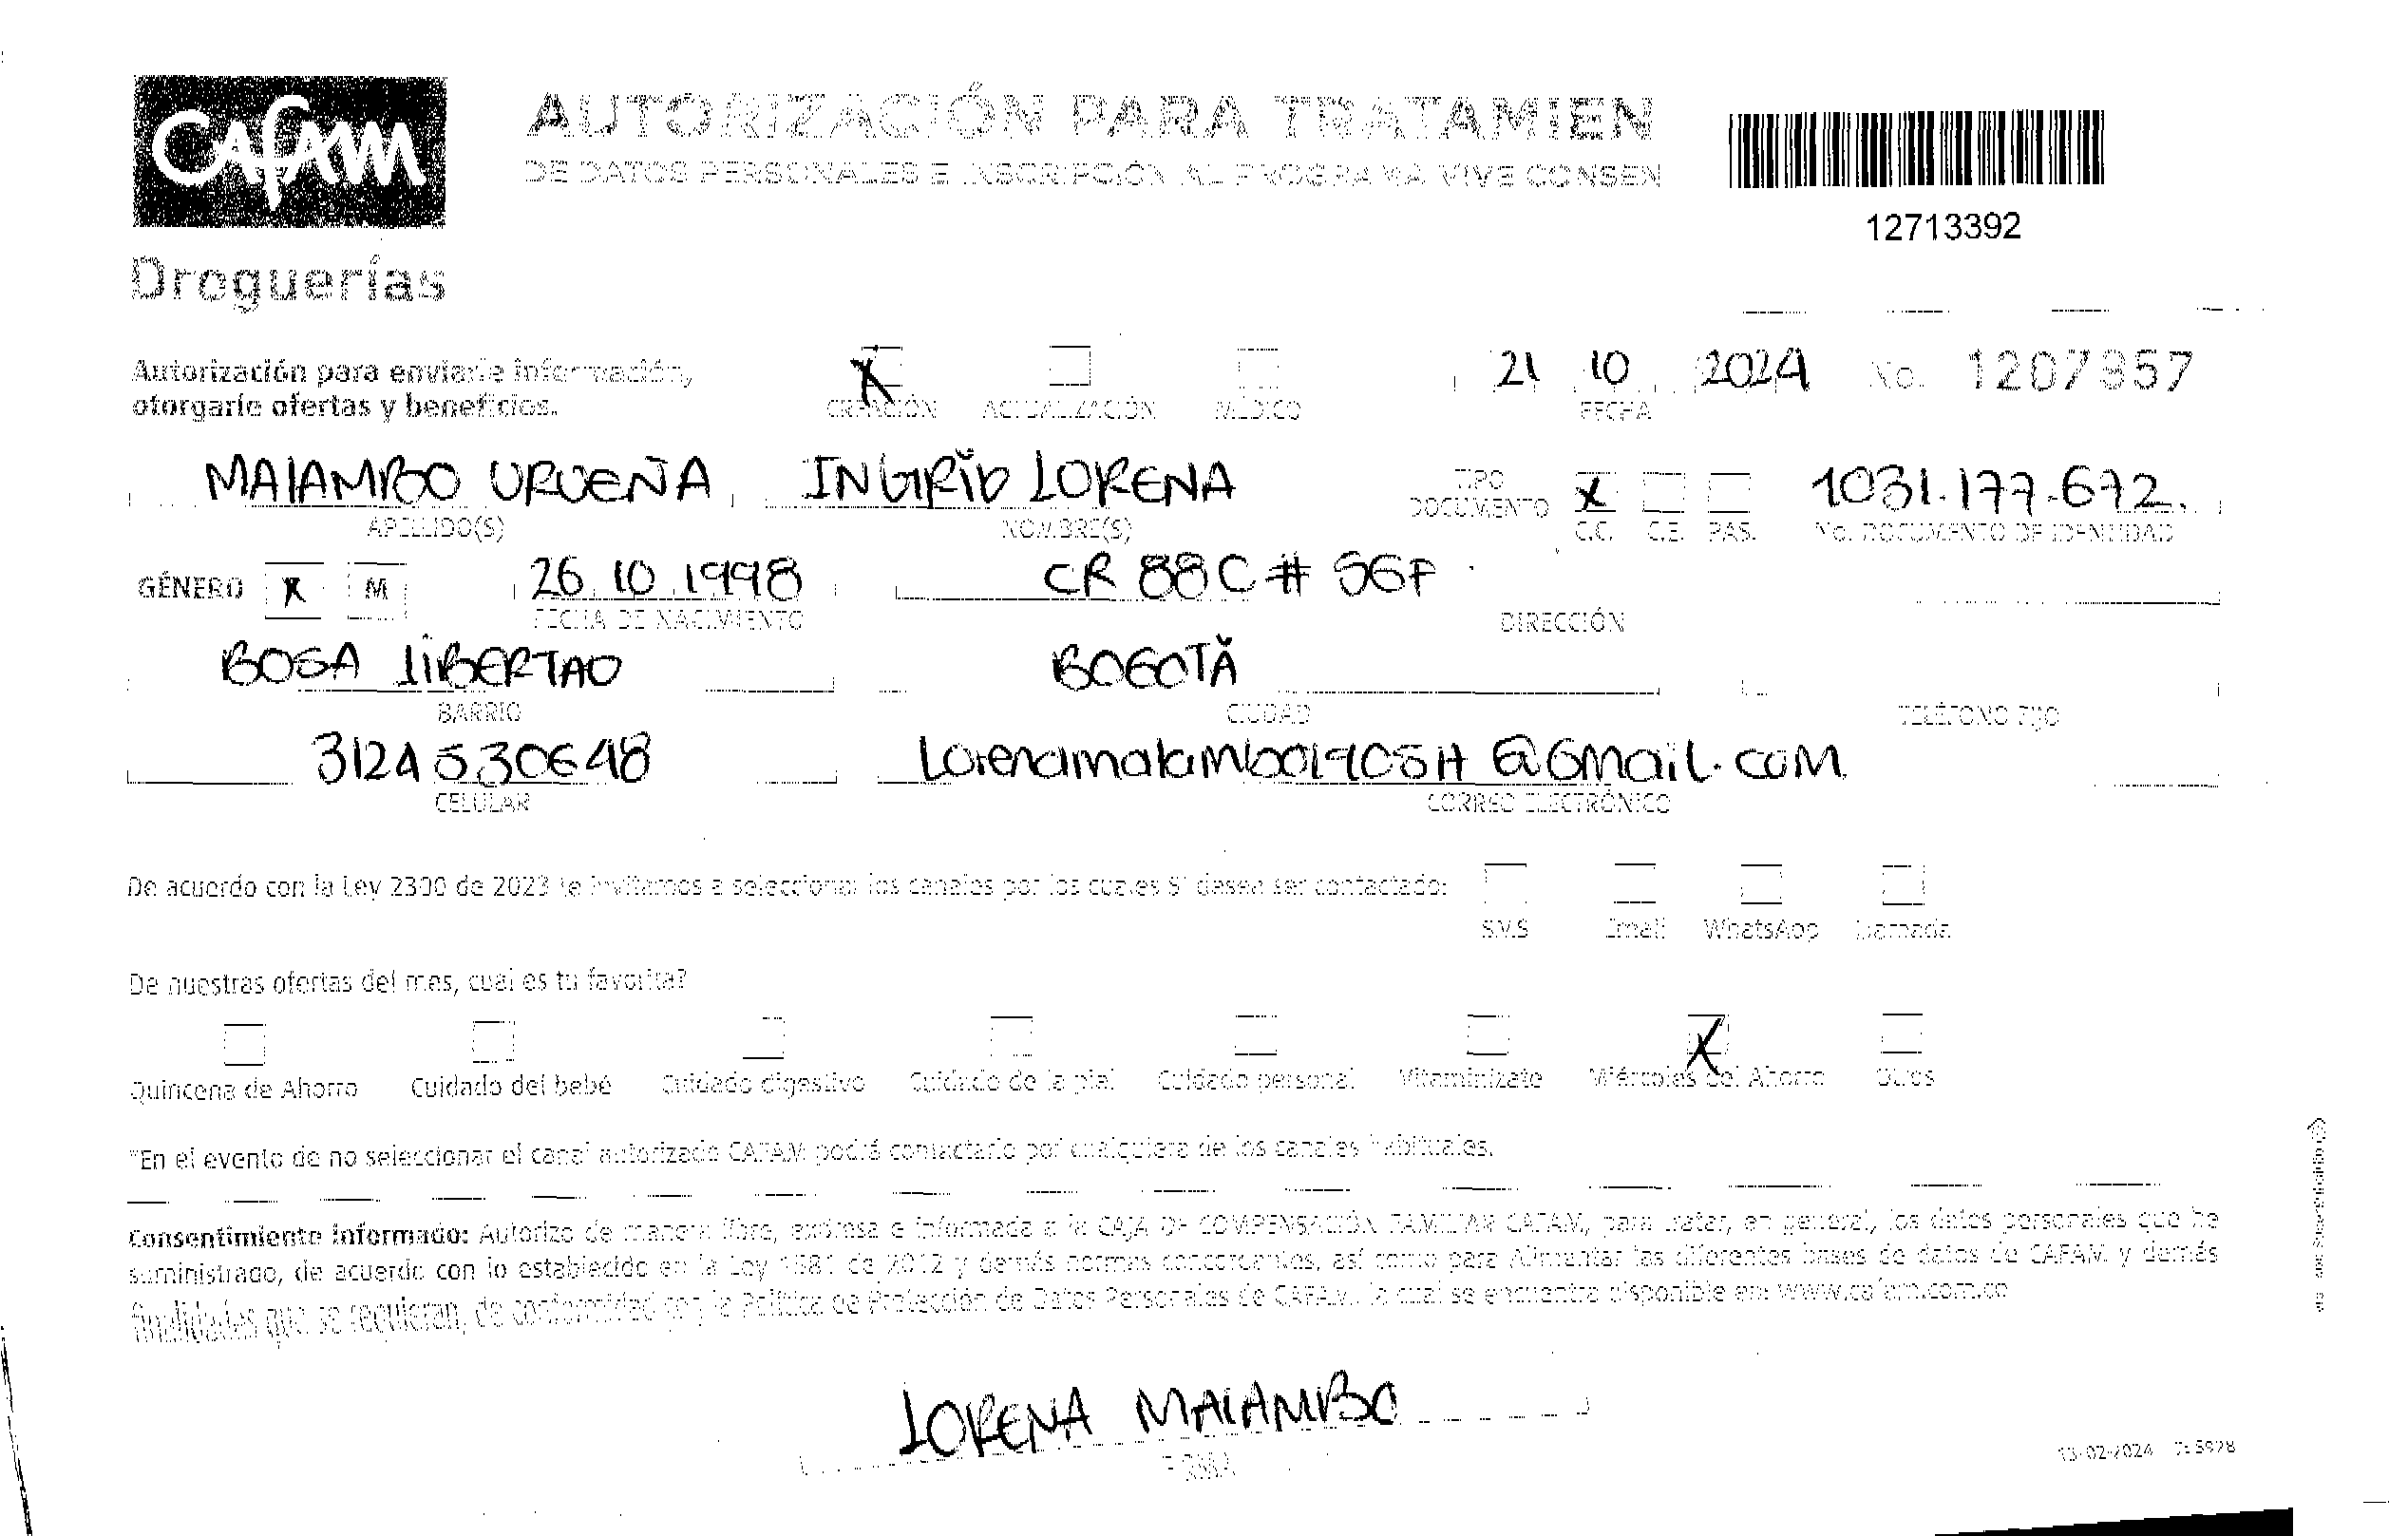 CAFAM
Droguerías
AUTORIZACIÓN PARA TRATAMIEN
DE DATOS PERSONALES E INSCRIPCIÓN AL PROGRAMA VIVE CONSEN
12713392
Autorización para enviarle información,
otorgarle ofertas y beneficios.
X CREACIÓN ACTUALIZACIÓN MÉDICO
21 10 2024 No. 1207957
FECHA
MALAMBO URUEÑA INGRID LORENA TIPO DOCUMENTO X 1031.177.672.
APELLIDO(S) NOMBRE(S) C.C. C.E. PAS. No. DOCUMENTO DE IDENTIDAD
GÉNERO X M 26 10 1998 CR 88C # 56F
FECHA DE NACIMIENTO DIRECCIÓN
BOSA LIBERTAD BOGOTÁ
BARRIO CIUDAD TELÉFONO FIJO
3124530648 @Gmail.com
CELULAR CORREO ELECTRÓNICO
De acuerdo con la Ley 2300 de 2023 te invitamos a seleccionar los canales por los cuales SI desea ser contactado:
SMS Email WhatsApp Llamada
De nuestras ofertas del mes, cual es tu favorita?
X
Quincena de Ahorro Cuidado del bebé Cuidado digestivo Cuidado de la piel Cuidado personal Vitaminízate Miércoles del Ahorro Otros
*En el evento de no seleccionar el canal autorizado CAFAM podrá contactarlo por cualquiera de los canales habituales.
Consentimiento informado: Autorizo de manera libre, expresa e informada a la CAJA DE COMPENSACIÓN FAMILIAR CAFAM, para tratar, en general, los datos personales que he
suministrado, de acuerdo con lo establecido en la Ley 1581 de 2012 y demás normas concordantes, así como para Alimentar las diferentes bases de datos de CAFAM y demás
finalidades que se requieran, de conformidad con la Política de Protección de Datos Personales de CAFAM, la cual se encuentra disponible en: www.cafam.com.co
LORENA MALAMBO
FIRMA
13-02-2024